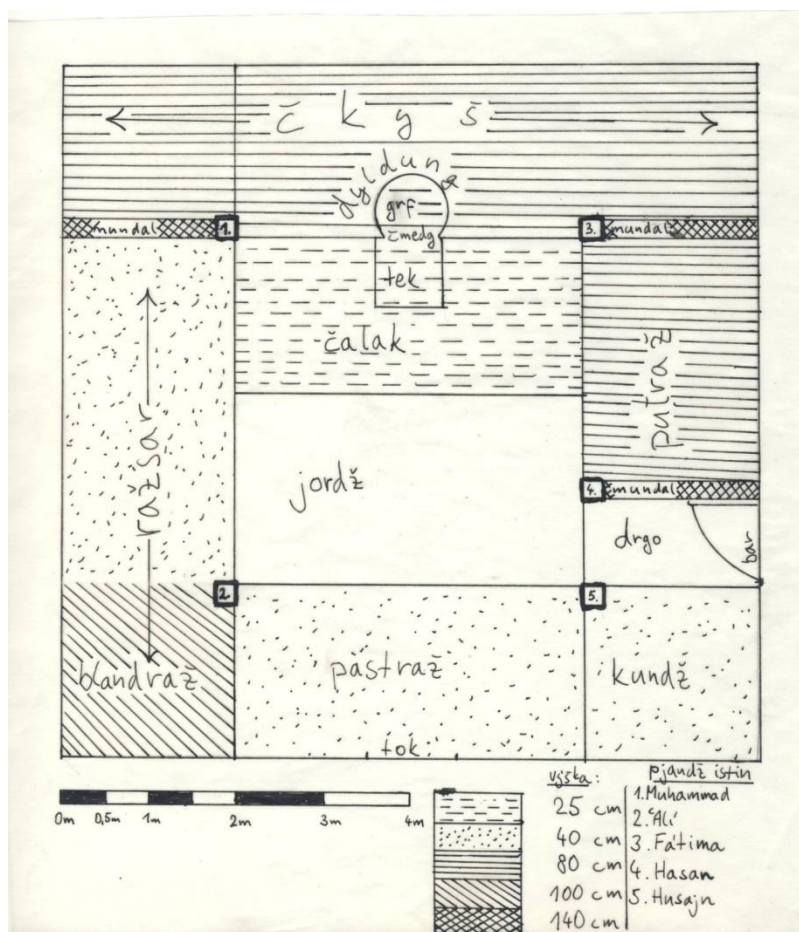 čkyš
dyldung
grf
zmedg
mundal 1. 3. mundal
tek
čalak
putraž
ražsar
jordž
4. mundal
drgo
bar
2. 5.
blandraž
pastraž
kundž
tok
0m 0,5m 1m 2m 3m 4m
výška:
25 cm
40 cm
80 cm
100 cm
140 cm
pjandž istin
1. Muhammad
2. 'Alí
3. Fátima
4. Hasan
5. Husajn